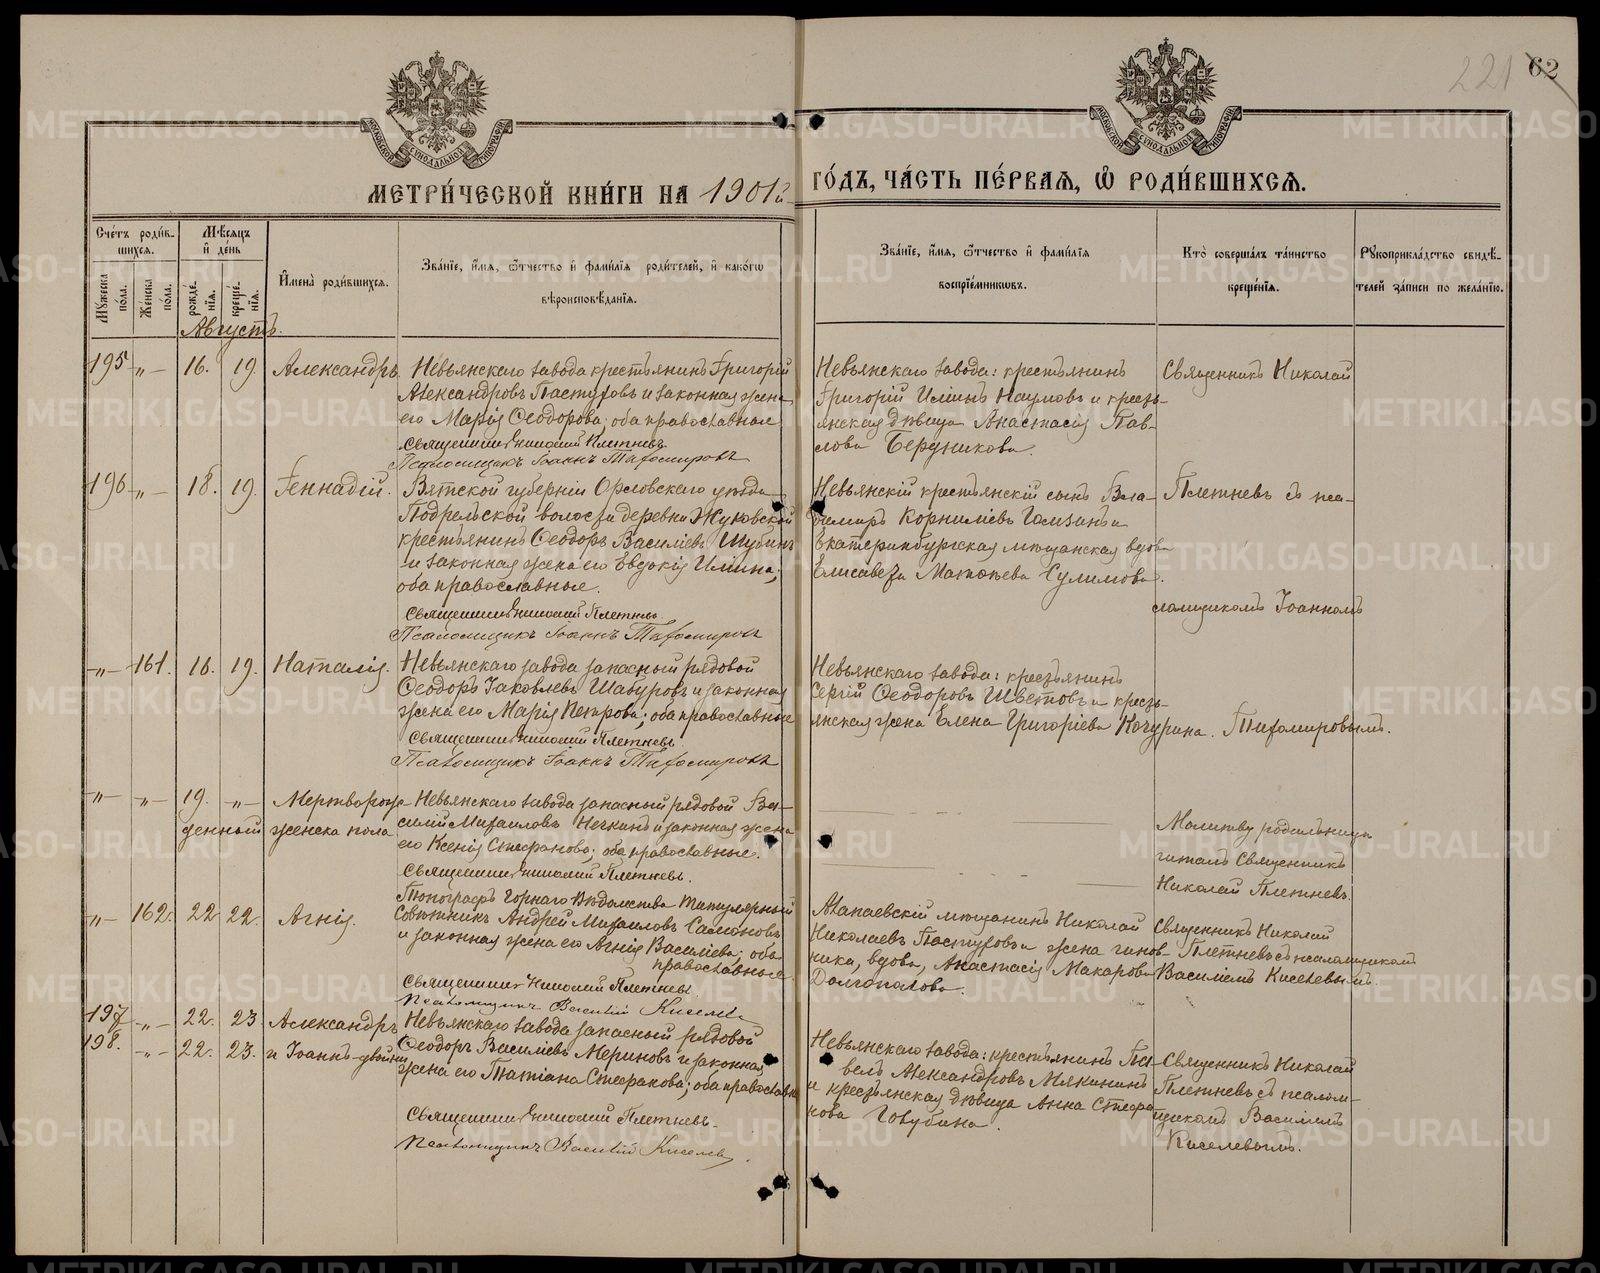 221 62
МОСКОВСКОЙ СѴНОДАЛЬНОЙ ТИПОГРАФІИ
МОСКОВСКОЙ СѴНОДАЛЬНОЙ ТИПОГРАФІИ
МЕТРИ́ЧЕСКОЙ КНИ́ГИ НА 1901й ГО́ДЪ, ЧА́СТЬ ПЕ́РВАЯ, Ѽ РОДИ́ВШИХСЯ.
Сче́тъ роди́в-
шихся.
Мꙋжеска по́ла.
Же́нска по́ла.
Мѣ́сяцъ
и҆ де́нь
рожде́нїя.
креще́нїя.
И҆мена̀ роди́вшихся.
Зва́нїе, и҆́мя, ѻ҆́тчество и҆ фами́лїя роди́телей, и҆ како́гѡ
вѣроисповѣ́данїя.
Зва́нїе, и҆́мя, ѻ҆́тчество и҆ фами́лїя
воспрїе́мникѡвъ.
Кто̀ соверша́лъ та́инство
креще́нїя.
Рꙋкоприкла́дство свидѣ́-
телей за́писи по жела́нїю.
Августъ.
195 -„- 16. 19. Александръ.
Невьянскаго завода крестьянинъ Григорій
Александровъ Пастуховъ и законная жена
его Марія Ѳеодорова; оба православные
Священникъ Николай Плетневъ.
Псаломщикъ Іоаннъ Тихомировъ
Невьянскаго завода: крестьянинъ
Григорій Наумовъ и кресть-
янская дѣвица Анастасія Пав-
лова Бердникова.
Священникъ Николай
196 -„- 18. 19. Геннадій.
Вятской губерніи Орловскаго уѣзда
Подрельской волости деревни Жуковской
крестьянинъ Ѳеодоръ Василіевъ Шубинъ
и законная жена его Евдокія Ильина;
оба православные.
Священникъ Николай Плетневъ
Псаломщикъ Іоаннъ Тихомировъ
Невьянскій крестьянскій сынъ Вла-
диміръ Корниліевъ и
Екатеринбургская мѣщанская вдова
Елисавета Матѳѣева Сулимова.
Плетневъ съ пса-
ломщикомъ Іоанномъ
-„- 161. 16. 19. Наталія.
Невьянскаго завода запасный рядовой
Ѳеодоръ Іаковлевъ Шабуровъ и законная
жена его Марія Петрова; оба православные
Священникъ Николай Плетневъ.
Псаломщикъ Іоаннъ Тихомировъ
Невьянскаго завода: крестьянинъ
Сергій Ѳеодоровъ Шветовъ и кресть-
янская жена Елена Григоріева Качурина.
Тихомировымъ.
-„- -„- 19. -„- Мертворож-
денный женска пола.
Невьянскаго завода запасный рядовой Ва-
силій Михаиловъ Нечкинъ и законная жена
его Ксенія Стефанова; оба православные.
Священникъ Николай Плетневъ.
Молитву родильницы
читалъ Священникъ
Николай Плетневъ.
-„- 162. 22. 22. Агнія.
Топографъ Горнаго Вѣдомства Титулярный
Совѣтникъ Андрей Михаиловъ Самоновъ
и законная жена его Агнія Василіева; оба
православные
Священникъ Николай Плетневъ.
Псаломщикъ Василій Киселевъ
Алапаевскій мѣщанинъ Николай
Николаевъ Пастуховъ и жена чинов-
ника, вдова, Анастасія Макарова
Долгополова.
Священникъ Николай
Плетневъ съ псаломщикомъ
Василіемъ Киселевымъ.
197 -„- 22. 23 Александръ
198. -„- 22. 23. и Іоаннъ-двойни
Невьянскаго завода запасный рядовой
Ѳеодоръ Василіевъ Мериновъ и законная
жена его Татіана Стефанова; оба православн
Священникъ Николай Плетневъ.
Псаломщикъ Василій Киселевъ.
Невьянскаго завода: крестьянинъ Па-
велъ Александровъ Мякининъ
и крестьянская дѣвица Анна Стефа-
нова Голубина.
Священникъ Николай
Плетневъ съ псалом-
щикомъ Василіемъ
Киселевымъ.
METRIKI.GASO-URAL.RU